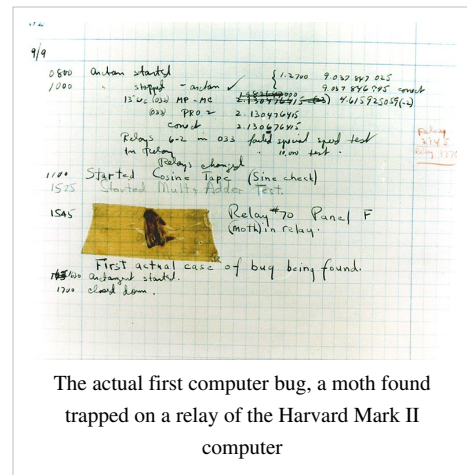 9/9
0800 Antan started { 1.2700 9.037 847 025
1000 " stopped - antan ✓ 9.037 846 995 correct
13"uc (032) MP - MC 2.130476415 4.615925059(-2)
(033) PRO 2 2.130476415
correct 2.130676415
Relays 6-2 in 033 failed special speed test
in relay " 10,000 test.
Relay
Relays changed
1100 Started Cosine Tape (Sine check)
1525 Started Multi Adder Test.
1545 Relay #70 Panel F
(moth) in relay.
First actual case of bug being found.
1630 antangent started.
1700 closed down.
The actual first computer bug, a moth found
trapped on a relay of the Harvard Mark II
computer